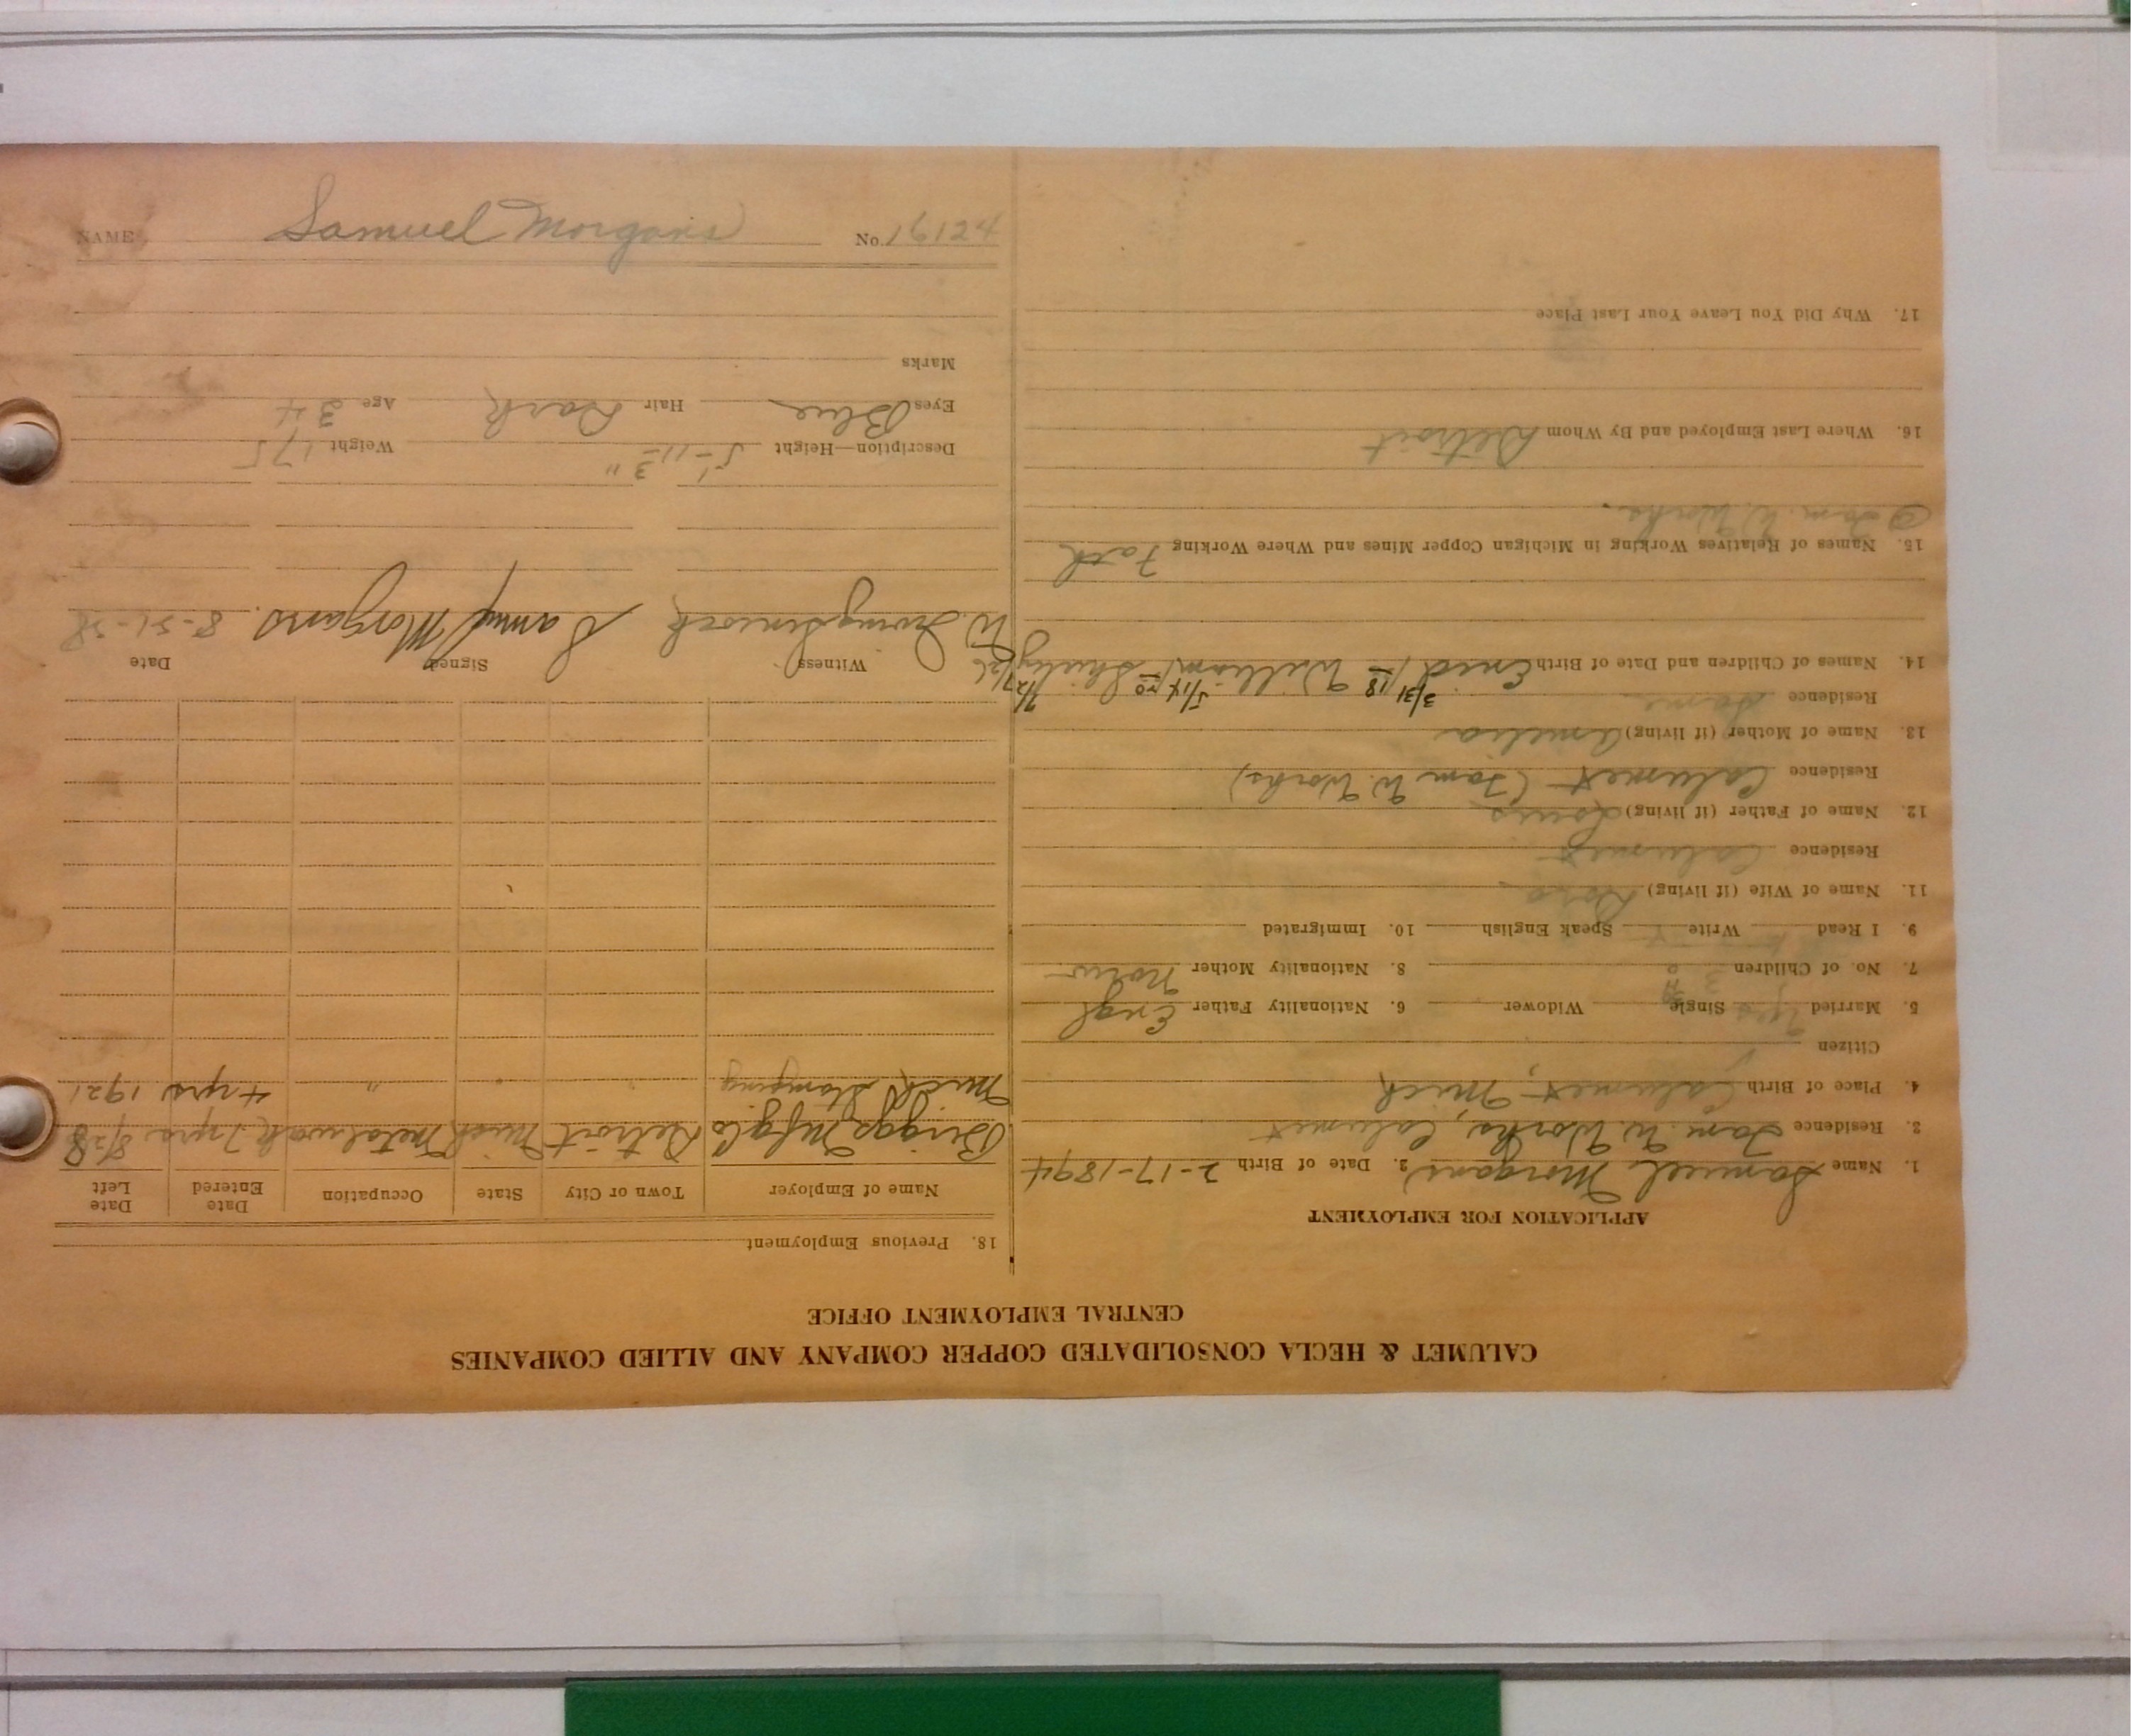 NAME Samuel Morgans No. 16124
CALUMET & HECLA CONSOLIDATED COPPER COMPANY AND ALLIED COMPANIES
CENTRAL EMPLOYMENT OFFICE
APPLICATION FOR EMPLOYMENT
1. Name Samuel Morgans 2. Date of Birth 2-17-1894
3. Residence Tam. W. Works, Calumet
4. Place of Birth Calumet, Mich
Citizen
5. Married Yes Single Widower 6. Nationality Father Engl
7. No. of Children 3 8. Nationality Mother
9. I Read Write Speak English 10. Immigrated
11. Name of Wife (if living)
Residence Calumet
12. Name of Father (if living) Louis
Residence Calumet (Tam W. Works)
13. Name of Mother (if living) Amelia
Residence Same
14. Names of Children and Date of Birth Enid 3/31 18 William 5/14 20 Shirley 7/27/26
15. Names of Relatives Working in Michigan Copper Mines and Where Working Fath
Tam. W. Works.
16. Where Last Employed and By Whom Detroit
17. Why Did You Leave Your Last Place
18. Previous Employment
Name of Employer Town or City State Occupation Date Entered Date Left
Briggs Mfg Co Detroit Mich Metal work 7 yrs 8/28
Mich Stamping " " " 4 yrs 1921
Witness Signed Date
W. Irving Samuel Morgans.
Description—Height 5'-11 3" Weight 175
Eyes Blue Hair Dark Age 34
Marks